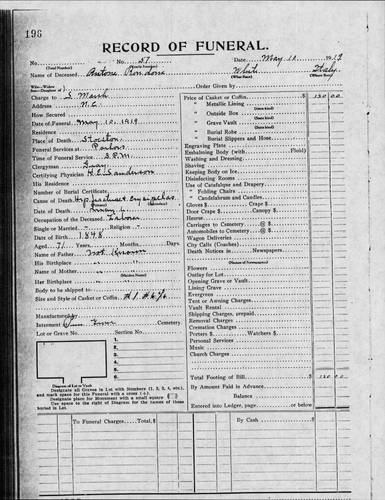 196
RECORD OF FUNERAL.
No. 51 Date May 10 1919
(Total Number) (Yearly Number)
Name of Deceased Antone Rondoni White Italy
(What Race) (Where Born)
Wife—Widow
Son—Daughter of Order Given by
Charge to S. Marsh
Address N.C.
How Secured
Date of Funeral May 10, 1919
Residence
Place of Death Stockton
Funeral Services at Parlors
Time of Service 3 P.M.
Clergyman
Certifying Physician H.E. Sanderson
His Residence
Number of Burial Certificate
Cause of Death Erysipelas
Date of Death May
Occupation of the Deceased Laborer
Single or Married Religion
Date of Birth 1848
Aged 71 Years, Months, Days
Name of Father Not Known
His Birthplace
Name of Mother
(Maiden Name)
Her Birthplace
Body to be shipped to
Size and Style of Casket or Coffin
Manufactured by
Interment Cemetery
Lot or Grave No. Section No.
1.
2.
3.
4.
5.
6.
Diagram of Lot or Vault
Designate all Graves in Lot with Numbers (1, 2, 3, 4, etc.),
and mark space for this Funeral with a cross (+).
Designate place for Monument with a small square
Use space to the right of Diagram for the names of those
buried in Lot.
Price of Casket or Coffin $ 120 00
" Metallic Lining
(State kind)
" Outside Box
(State kind)
" Grave Vault
(State kind)
" Burial Robe
" Burial Slippers and Hose
Engraving Plate
Embalming Body (with Fluid)
Washing and Dressing
Shaving
Keeping Body on Ice
Disinfecting Rooms
Use of Catafalque and Drapery
" Folding Chairs
" Candelabrum and Candles
Gloves $ Crape $
Door Crape $ Canopy $
Hearse
Carriages to Cemetery @ $
Automobiles to Cemetery @ $
Wagon Deliveries
City Calls (Coaches)
Death Notices in Newspapers
(Names of Newspapers)
Flowers
Outlay for Lot
Opening Grave or Vault
Lining Grave
Evergreen
Tent or Awning Charges
Vault Rental
Shipping Charges, prepaid
Removal Charges
Cremation Charges
Porters $ Watchers $
Personal Services
Music
Church Charges
Total Footing of Bill $ 120 00
By Amount Paid in Advance
Balance
Entered into Ledger, page or below. $
To Funeral Charges Total $
By Cash $